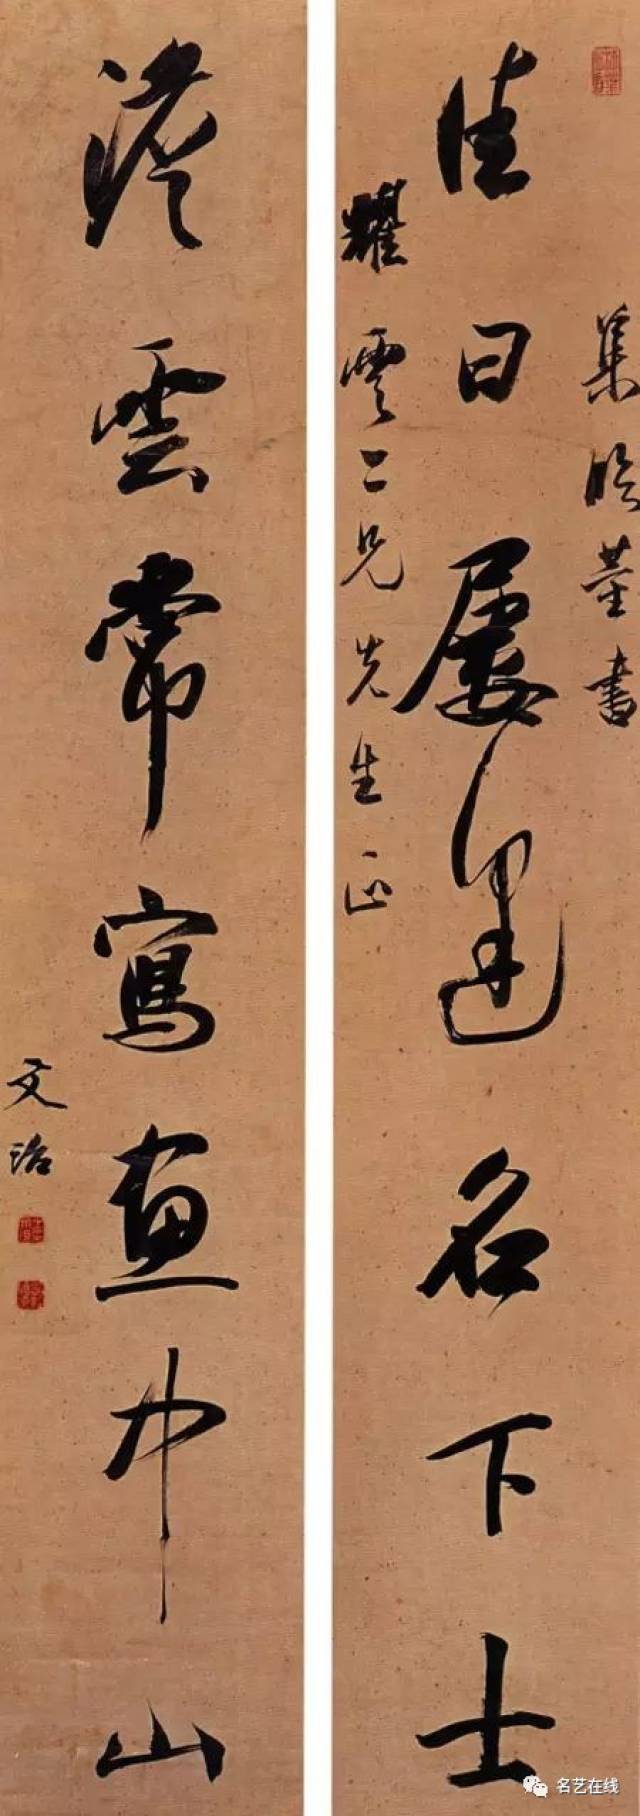 集臨董書
佳日屢逢名下士
耀雲二兄先生正
淡雲常寫畫中山
文治
名艺在线